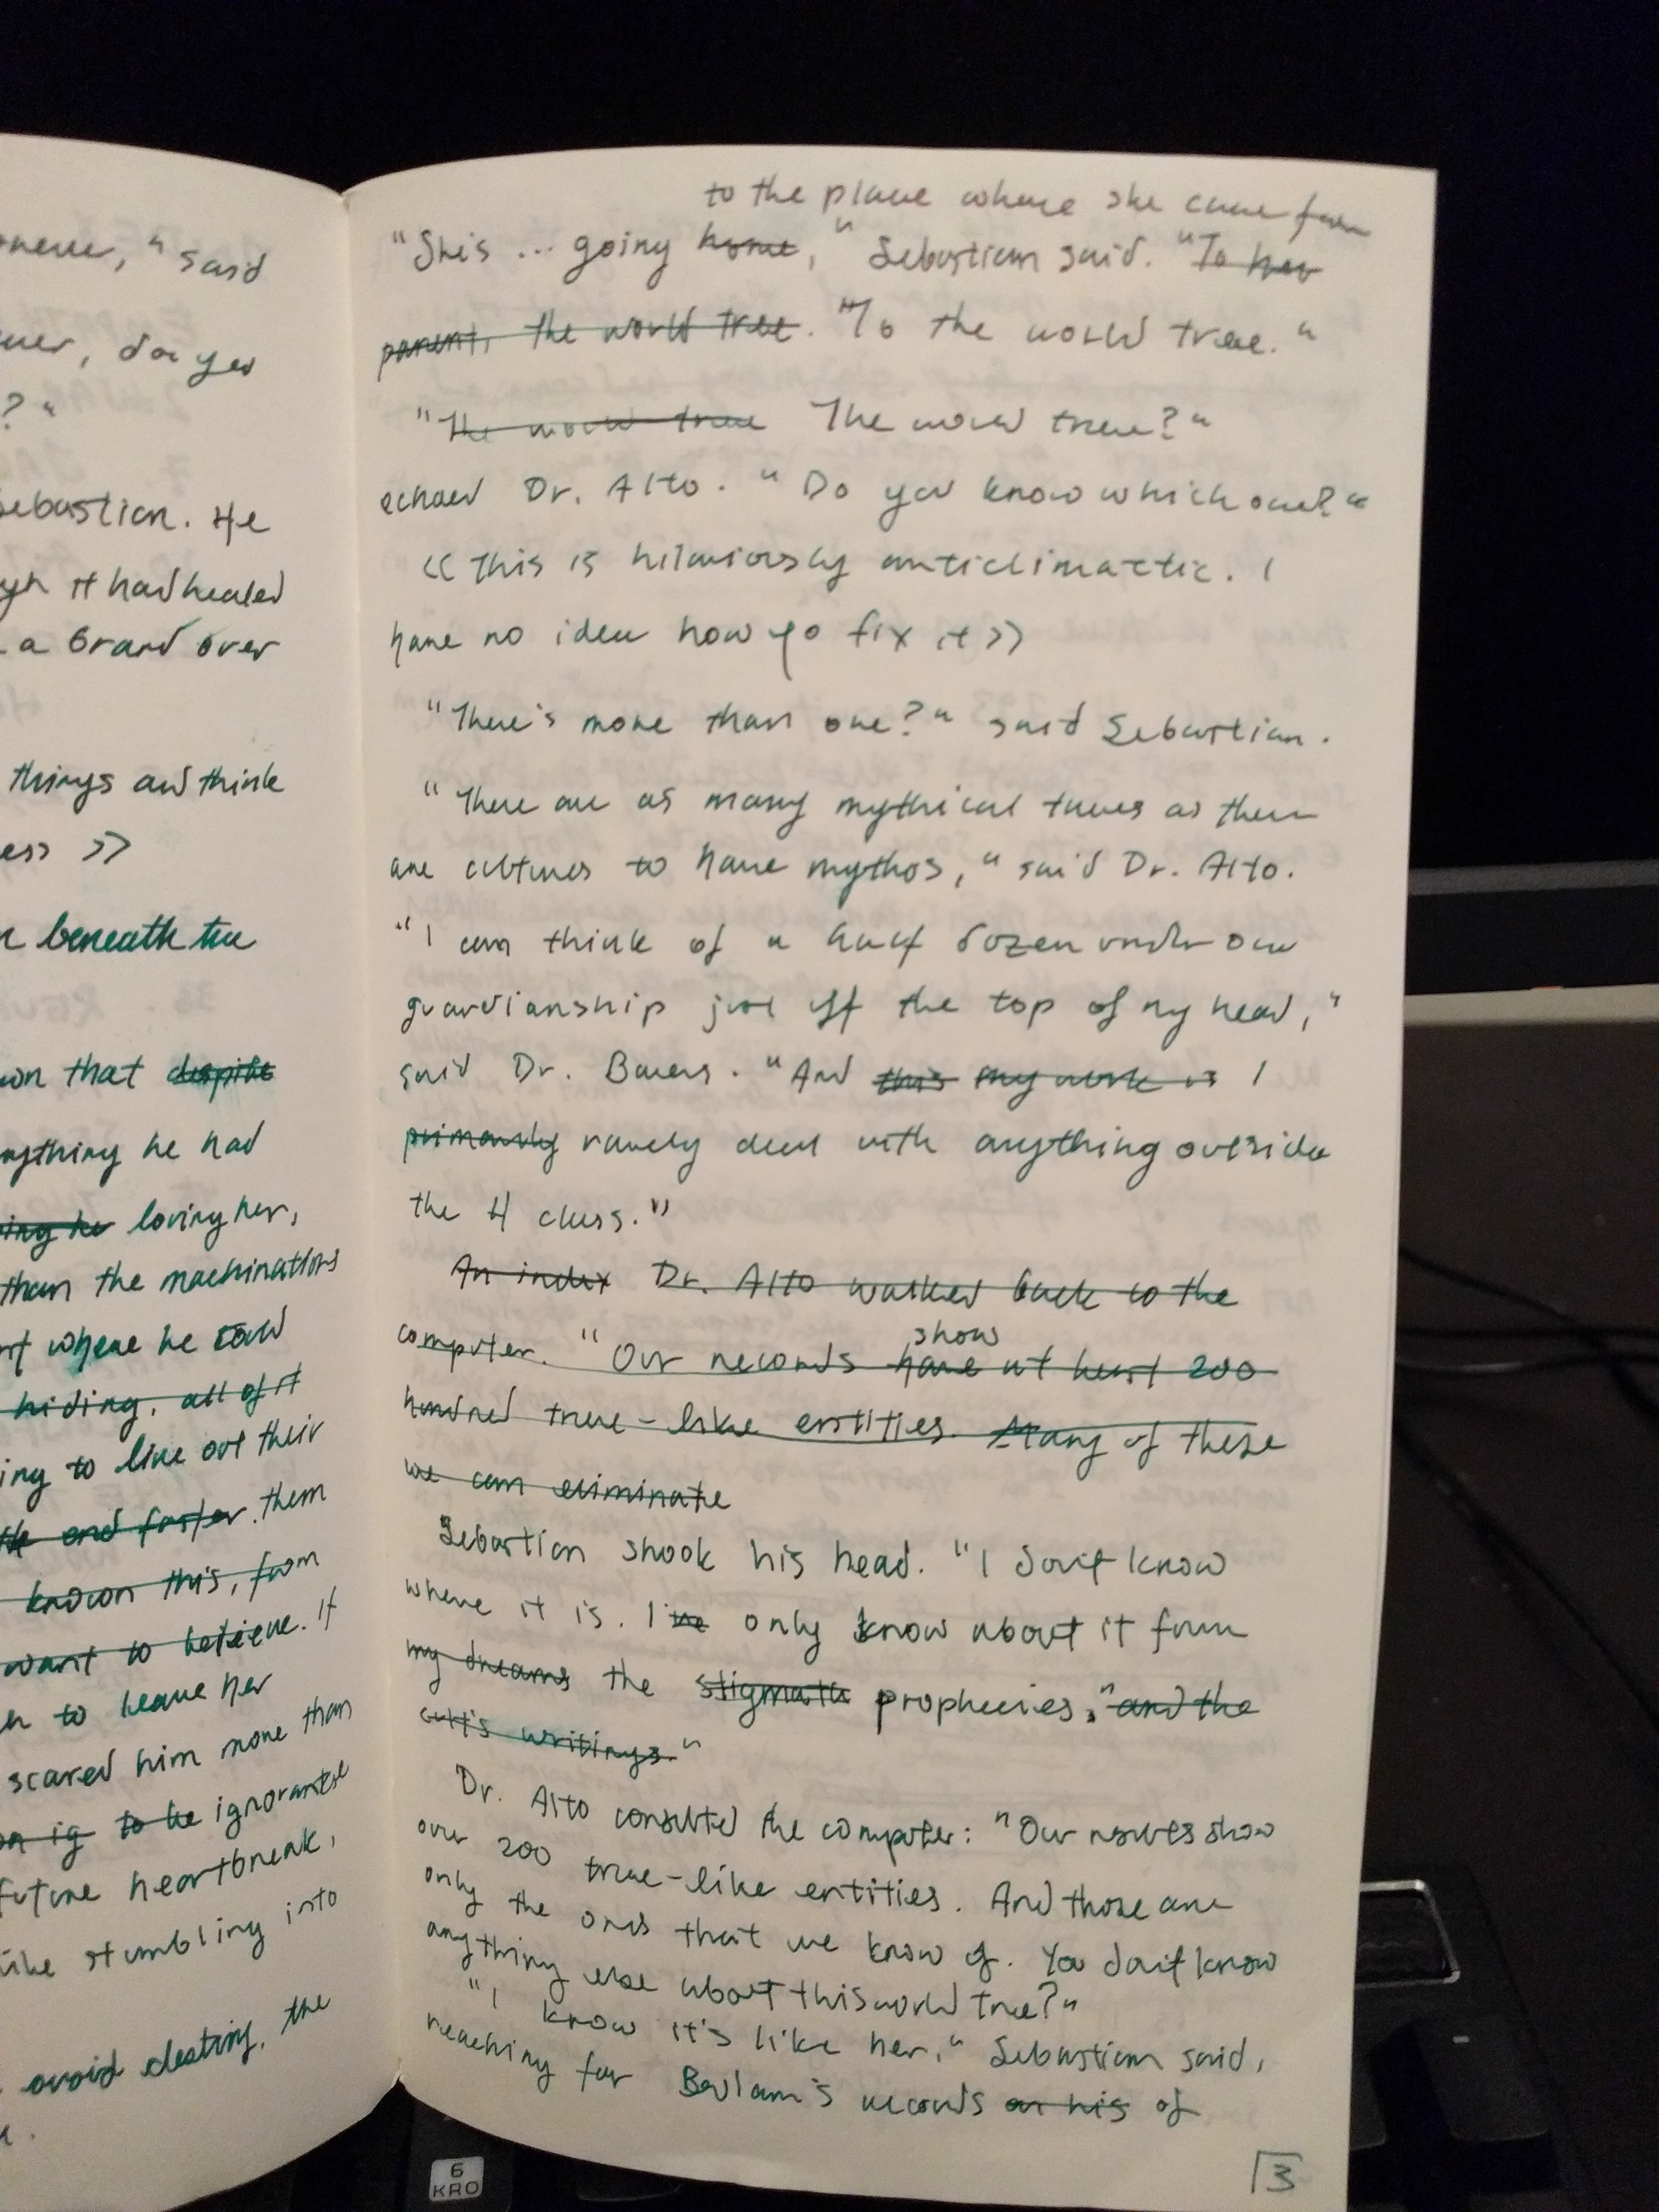 said
?"
Sebastian. He
it had healed
a brand over
things and think
>>
beneath the
that despite
he had
loving her,
than the machinations
where he could
hiding, all of it
to live out their
end faster. them
known this, from
want to believe. If
to leave her
scared him more than
to be ignorance
future heartbreak,
stumbling into
avoid destiny, the
to the place where she came from
"She's ... going home," Sebastian said. "To her
parent, the world tree. "To the world tree."
"The world tree The world tree?"
echoed Dr. Alto. "Do you know which one?"
<< This is hilariously anticlimactic. I
have no idea how yo fix it >>
"There's more than one?" said Sebastian.
"There are as many mythical trees as there
are cultures to have mythos," said Dr. Alto.
"I can think of a half dozen under our
guardianship just off the top of my head,"
said Dr. "And this my work is I
primarily rarely deal with anything outside
the 4 class."
An index Dr. Alto walked back to the
show
computer. "Our records have at least 200
hundred tree-like entities. Many of these
we can eliminate
Sebastian shook his head. "I don't know
where it is. I've only know about it from
my dreams the stigmata prophecies." and the
cult's writings."
Dr. Alto consulted the computer: "Our results show
over 200 tree-like entities. And those are
only the ones that we know of. You don't know
anything else about this world tree?"
"I know it's like her," Sebastian said,
reaching for records on his of
3
6
KRO